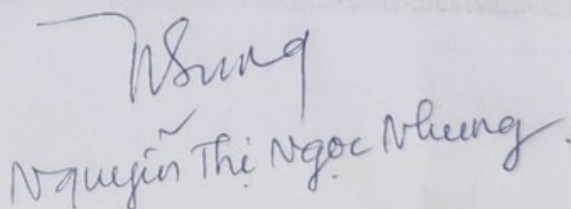 Nhung
Nguyễn Thị Ngọc Nhung.